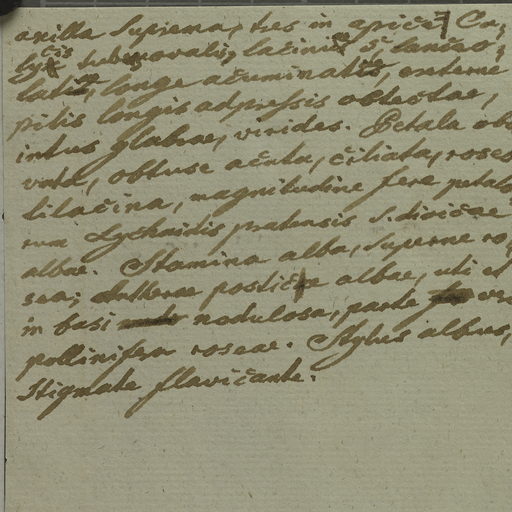 axilla suprema, tres in apice. Ca,
lycis tubo ovatis, laciniis 5, lanceo,
latis, longe acuminatis, externe
pilis longis adpressis obtectae,
intus glabrae, virides. Petala obo
vata, obtuse acuta, ciliata, roseo
lilacina, magnitudine fere petalo
rum Lychnidis pratensis s. dioicae
albae. Stamina alba, superne ro,
sea; Antherae posticae albae, uti et
in basi nodulosa, parte vero
pollinifera roseae. Stylus albus,
Stigmate flavicante.